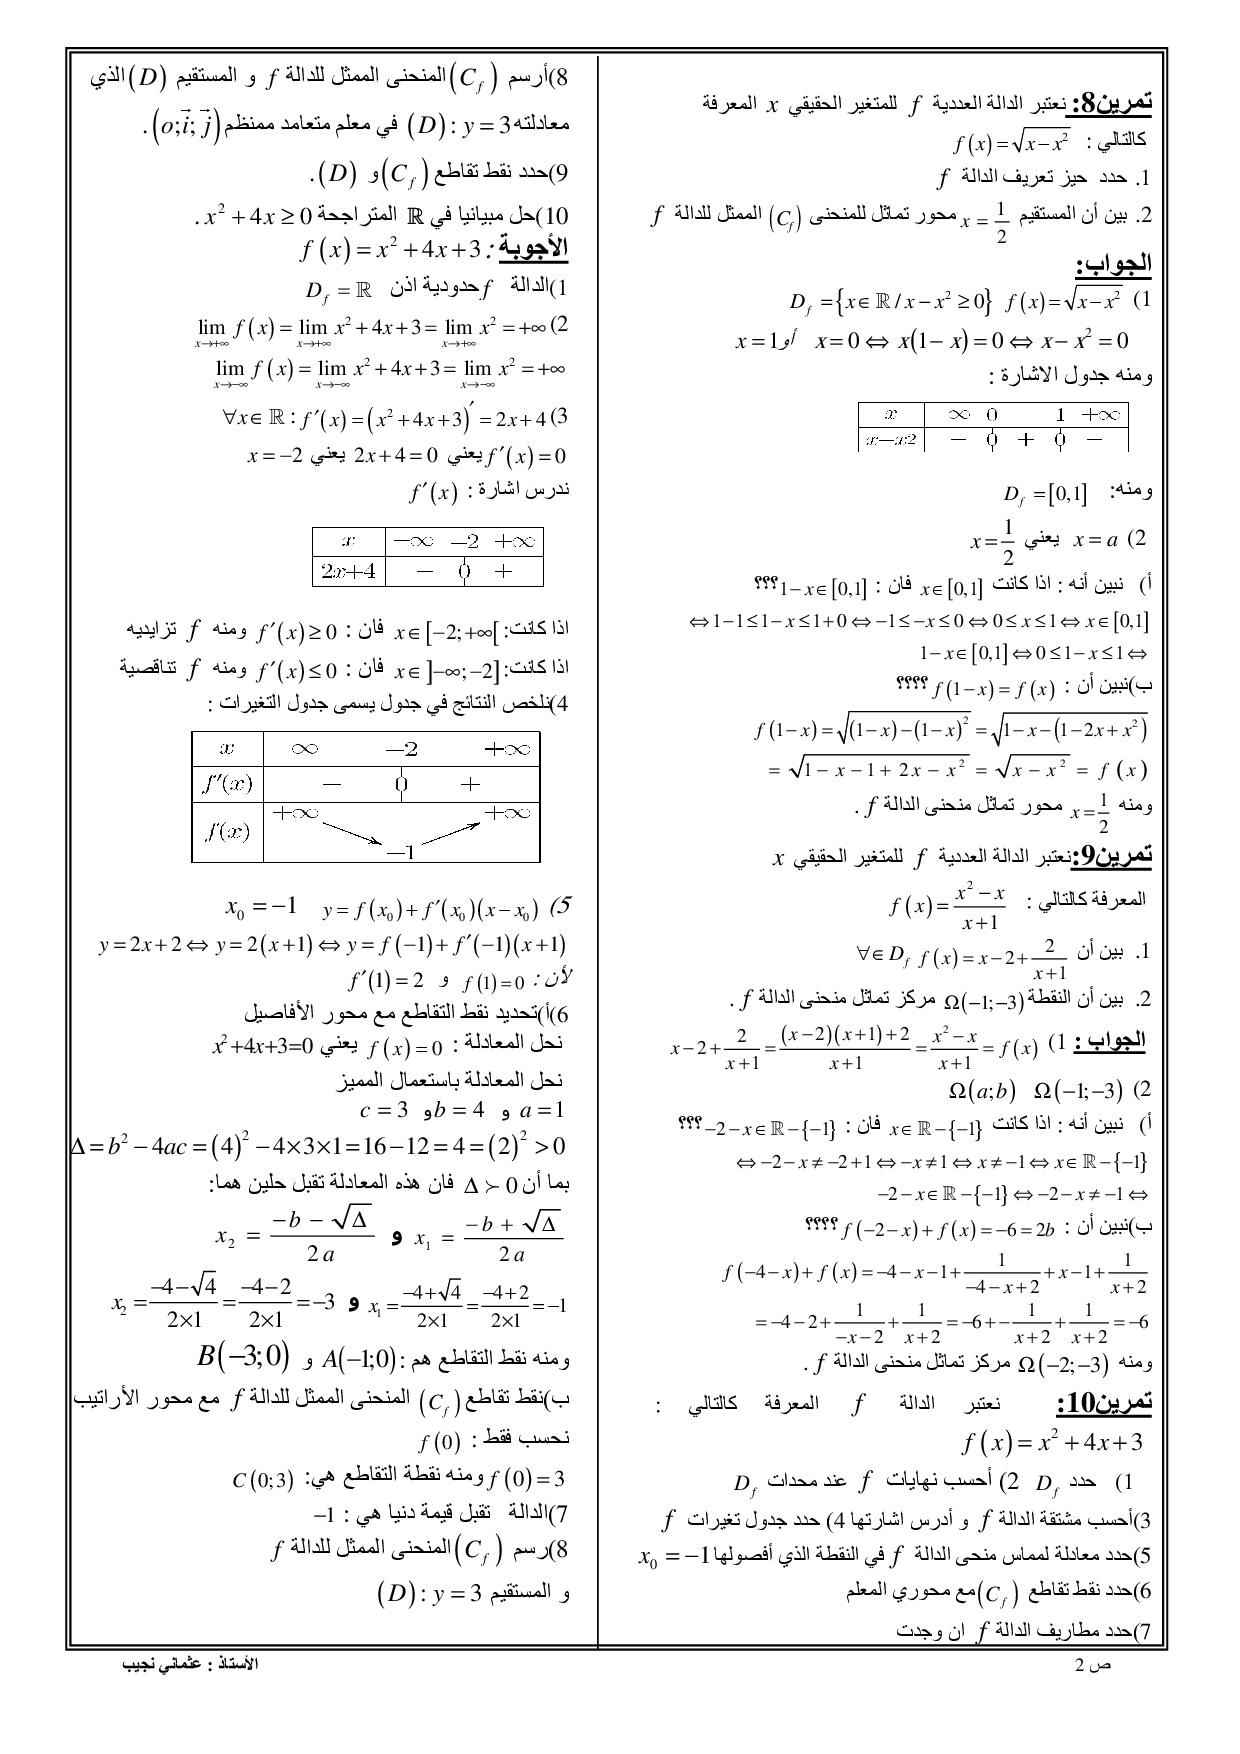 تمرين8: نعتبر الدالة العددية f للمتغير الحقيقي x المعرفة
كالتالي : f(x)=√(x−x²)
1. حدد حيز تعريف الدالة f
2. بين أن المستقيم x = 1/2 محور تماثل للمنحنى (C_f) الممثل للدالة f
الجواب:
1) f(x)=√(x−x²) D_f = {x∈ℝ / x−x² ≥ 0}
x=1 أو x=0 ⇔ x(1−x)=0 ⇔ x−x²=0
ومنه جدول الاشارة :
x ∞ 0 1 +∞
x−x2 − 0 + 0 −
ومنه: D_f = [0,1]
2) x = a يعني x = 1/2
أ) نبين أنه : اذا كانت x∈[0,1] فان : 1−x∈[0,1]؟؟؟
⇔ 1−1≤1−x≤1+0 ⇔ −1≤−x≤0 ⇔ 0≤x≤1 ⇔ x∈[0,1]
1−x∈[0,1] ⇔ 0≤1−x≤1 ⇔
ب)نبين أن : f(1−x)= f(x) ؟؟؟؟
f(1−x)=√((1−x)−(1−x)²) = √(1−x−(1−2x+x²))
= √(1−x−1+2x−x²) = √(x−x²) = f(x)
ومنه x = 1/2 محور تماثل منحنى الدالة f .
تمرين9:نعتبر الدالة العددية f للمتغير الحقيقي x
المعرفة كالتالي : f(x)= (x²−x)/(x+1)
1. بين أن f(x)= x−2+ 2/(x+1) ∀∈D_f
2. بين أن النقطة Ω(−1;−3) مركز تماثل منحنى الدالة f .
الجواب : 1) x−2+ 2/(x+1) = ((x−2)(x+1)+2)/(x+1) = (x²−x)/(x+1) = f(x)
2) Ω(−1;−3) Ω(a;b)
أ) نبين أنه : اذا كانت x∈ℝ−{−1} فان : −2−x∈ℝ−{−1}؟؟؟
⇔ −2−x ≠ −2+1 ⇔ −x≠1 ⇔ x≠−1 ⇔ x∈ℝ−{−1}
−2−x∈ℝ−{−1} ⇔ −2−x ≠ −1 ⇔
ب)نبين أن : f(−2−x)+f(x)=−6=2b ؟؟؟؟
f(−4−x)+f(x)=−4−x−1+ 1/(−4−x+2) + x−1+ 1/(x+2)
=−4−2+ 1/(−x−2) + 1/(x+2) =−6+− 1/(x+2) + 1/(x+2) =−6
ومنه Ω(−2;−3) مركز تماثل منحنى الدالة f .
تمرين10: نعتبر الدالة f المعرفة كالتالي :
f(x)= x²+4x+3
1) حدد D_f 2) أحسب نهايات f عند محدات D_f
3)أحسب مشتقة الدالة f و أدرس اشارتها 4) حدد جدول تغيرات f
5)حدد معادلة لمماس منحى الدالة f في النقطة الذي أفصولها x₀ = −1
6)حدد نقط تقاطع (C_f) مع محوري المعلم
7)حدد مطاريف الدالة f ان وجدت
8)أرسم (C_f) المنحنى الممثل للدالة f و المستقيم (D) الذي
معادلته (D): y = 3 في معلم متعامد ممنظم (o;i⃗;j⃗) .
9)حدد نقط تقاطع (C_f) و (D) .
10)حل مبيانيا في ℝ المتراجحة x²+4x≥0 .
الأجوبة : f(x)= x²+4x+3
1)الدالة f حدودية اذن D_f = ℝ
2) lim_{x→+∞} f(x)= lim_{x→+∞} x²+4x+3= lim_{x→+∞} x² =+∞
lim_{x→−∞} f(x)= lim_{x→−∞} x²+4x+3= lim_{x→−∞} x² =+∞
3) ∀x∈ℝ : f′(x)=(x²+4x+3)′ = 2x+4
f′(x)=0 يعني 2x+4=0 يعني x=−2
ندرس اشارة : f′(x)
x −∞ −2 +∞
2x+4 − 0 +
اذا كانت: x∈[−2;+∞[ فان : f′(x)≥0 ومنه f تزايديه
اذا كانت: x∈]−∞;−2] فان : f′(x)≤0 ومنه f تناقصية
4)نلخص النتائج في جدول يسمى جدول التغيرات :
x ∞ −2 +∞
f′(x) − 0 +
f(x) +∞ −1 +∞
5) y = f(x₀)+ f′(x₀)(x−x₀) x₀ = −1
y=2x+2 ⇔ y=2(x+1) ⇔ y=f(−1)+f′(−1)(x+1)
لأن : f(1)=0 و f′(1)=2
6)أ)تحديد نقط التقاطع مع محور الأفاصيل
نحل المعادلة : f(x)=0 يعني x²+4x+3=0
نحل المعادلة باستعمال المميز
a=1 و b=4 و c=3
Δ=b²−4ac=(4)²−4×3×1=16−12=4=(2)²>0
بما أن Δ≻0 فان هذه المعادلة تقبل حلين هما:
x₁ = (−b+√Δ)/2a و x₂ = (−b−√Δ)/2a
x₁ = (−4+√4)/(2×1) = (−4+2)/(2×1) =−1 و x₂ = (−4−√4)/(2×1) = (−4−2)/(2×1) =−3
ومنه نقط التقاطع هم : A(−1;0) و B(−3;0)
ب)نقط تقاطع (C_f) المنحنى الممثل للدالة f مع محور الأراتيب
نحسب فقط : f(0)
f(0)=3 ومنه نقطة التقاطع هي: C(0;3)
7)الدالة تقبل قيمة دنيا هي : −1
8)رسم (C_f) المنحنى الممثل للدالة f
و المستقيم (D): y=3
ص 2
الأستاذ : عثماني نجيب